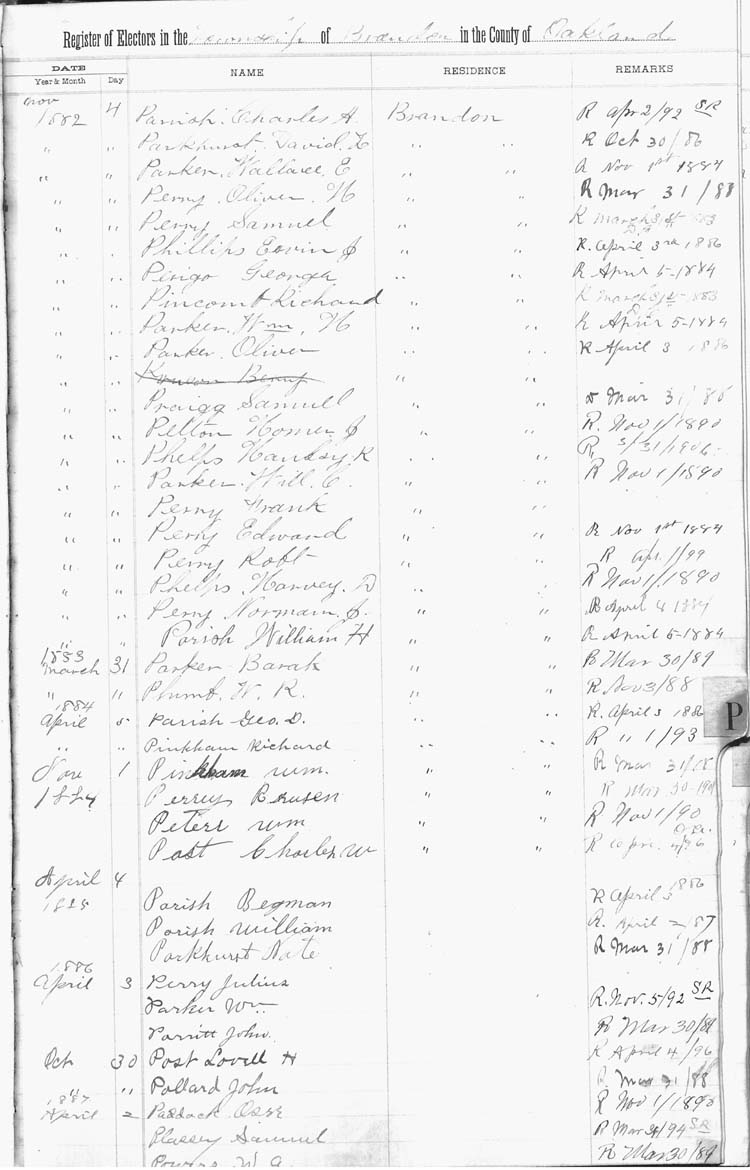 Register of Electors in the Township of Brandon in the County of Oakland
DATE
Year & Month Day NAME RESIDENCE REMARKS
Nov
1882 4 Parrish, Charles A. Brandon R Apr 2/92 SR
" " Parkhurst, David, L " " R Oct 30/86
" " Parker, Wallace, E " " R Nov 1st 1884
" " Perry, Oliver, H " " R Mar 31/88
" " Perry Samuel " " R March 31st 1883
" " Phillips Ervin J " " R. April 3rd 1886
" " Perigo George " " R April 5-1884
" " Pincomb Richard " " R March 31st-1883
" " Parker, Wm, H " " R April 5-1884
" " Parker, Oliver " " R April 3 1886
" " Benny " "
" " Praigg Samuel " " R Mar 31/88
" " Pelton Homer J " " R. Nov 1/1890
" " Phelps R " " R 3/31/1906
" " Parker, Will, C. " " R Nov 1/1890
" " Perry Frank " "
" " Perry Edward " " R Nov 1st 1884
" " Perry Robt " " R Apr. 1/99
" " Phelps Harvey, D " " R Nov 1/1890
" " Perry Norman, J. " " R April 4 1884
" " Parish William H " " R April 5-1884
1883
March 31 Parker Barak " " R Mar 30/89
" " Plumb, W. R. " " R Nov 3/88
1884
April 5 Parish Geo. D. " " R. April 3 1886
" " Pinkham Richard " " R " 1/93
Nov 1 Pinkham Wm. " " R Mar 31/88
1884 Perry " " R Mar 30-190
Peters Wm " " R Nov 1/90
Post Charles W " " R
P
April 4
1885 Parish Begman R April 3 1886
Parish William R. April 2/87
Parkhurst Nate R Mar 31/88
1886
April 3 Perry Julius
Parker Wm. R. Nov. 5/92 SR
Parritt John R Mar 30/89
Oct 30 Post Lovell H R April 4/96
" Pollard John R. Mar 31/88
1887
April 2 Paddock R Nov 1/1890
Plassey Samuel R Mar 94 SR
Powers W G R Mar 30/89